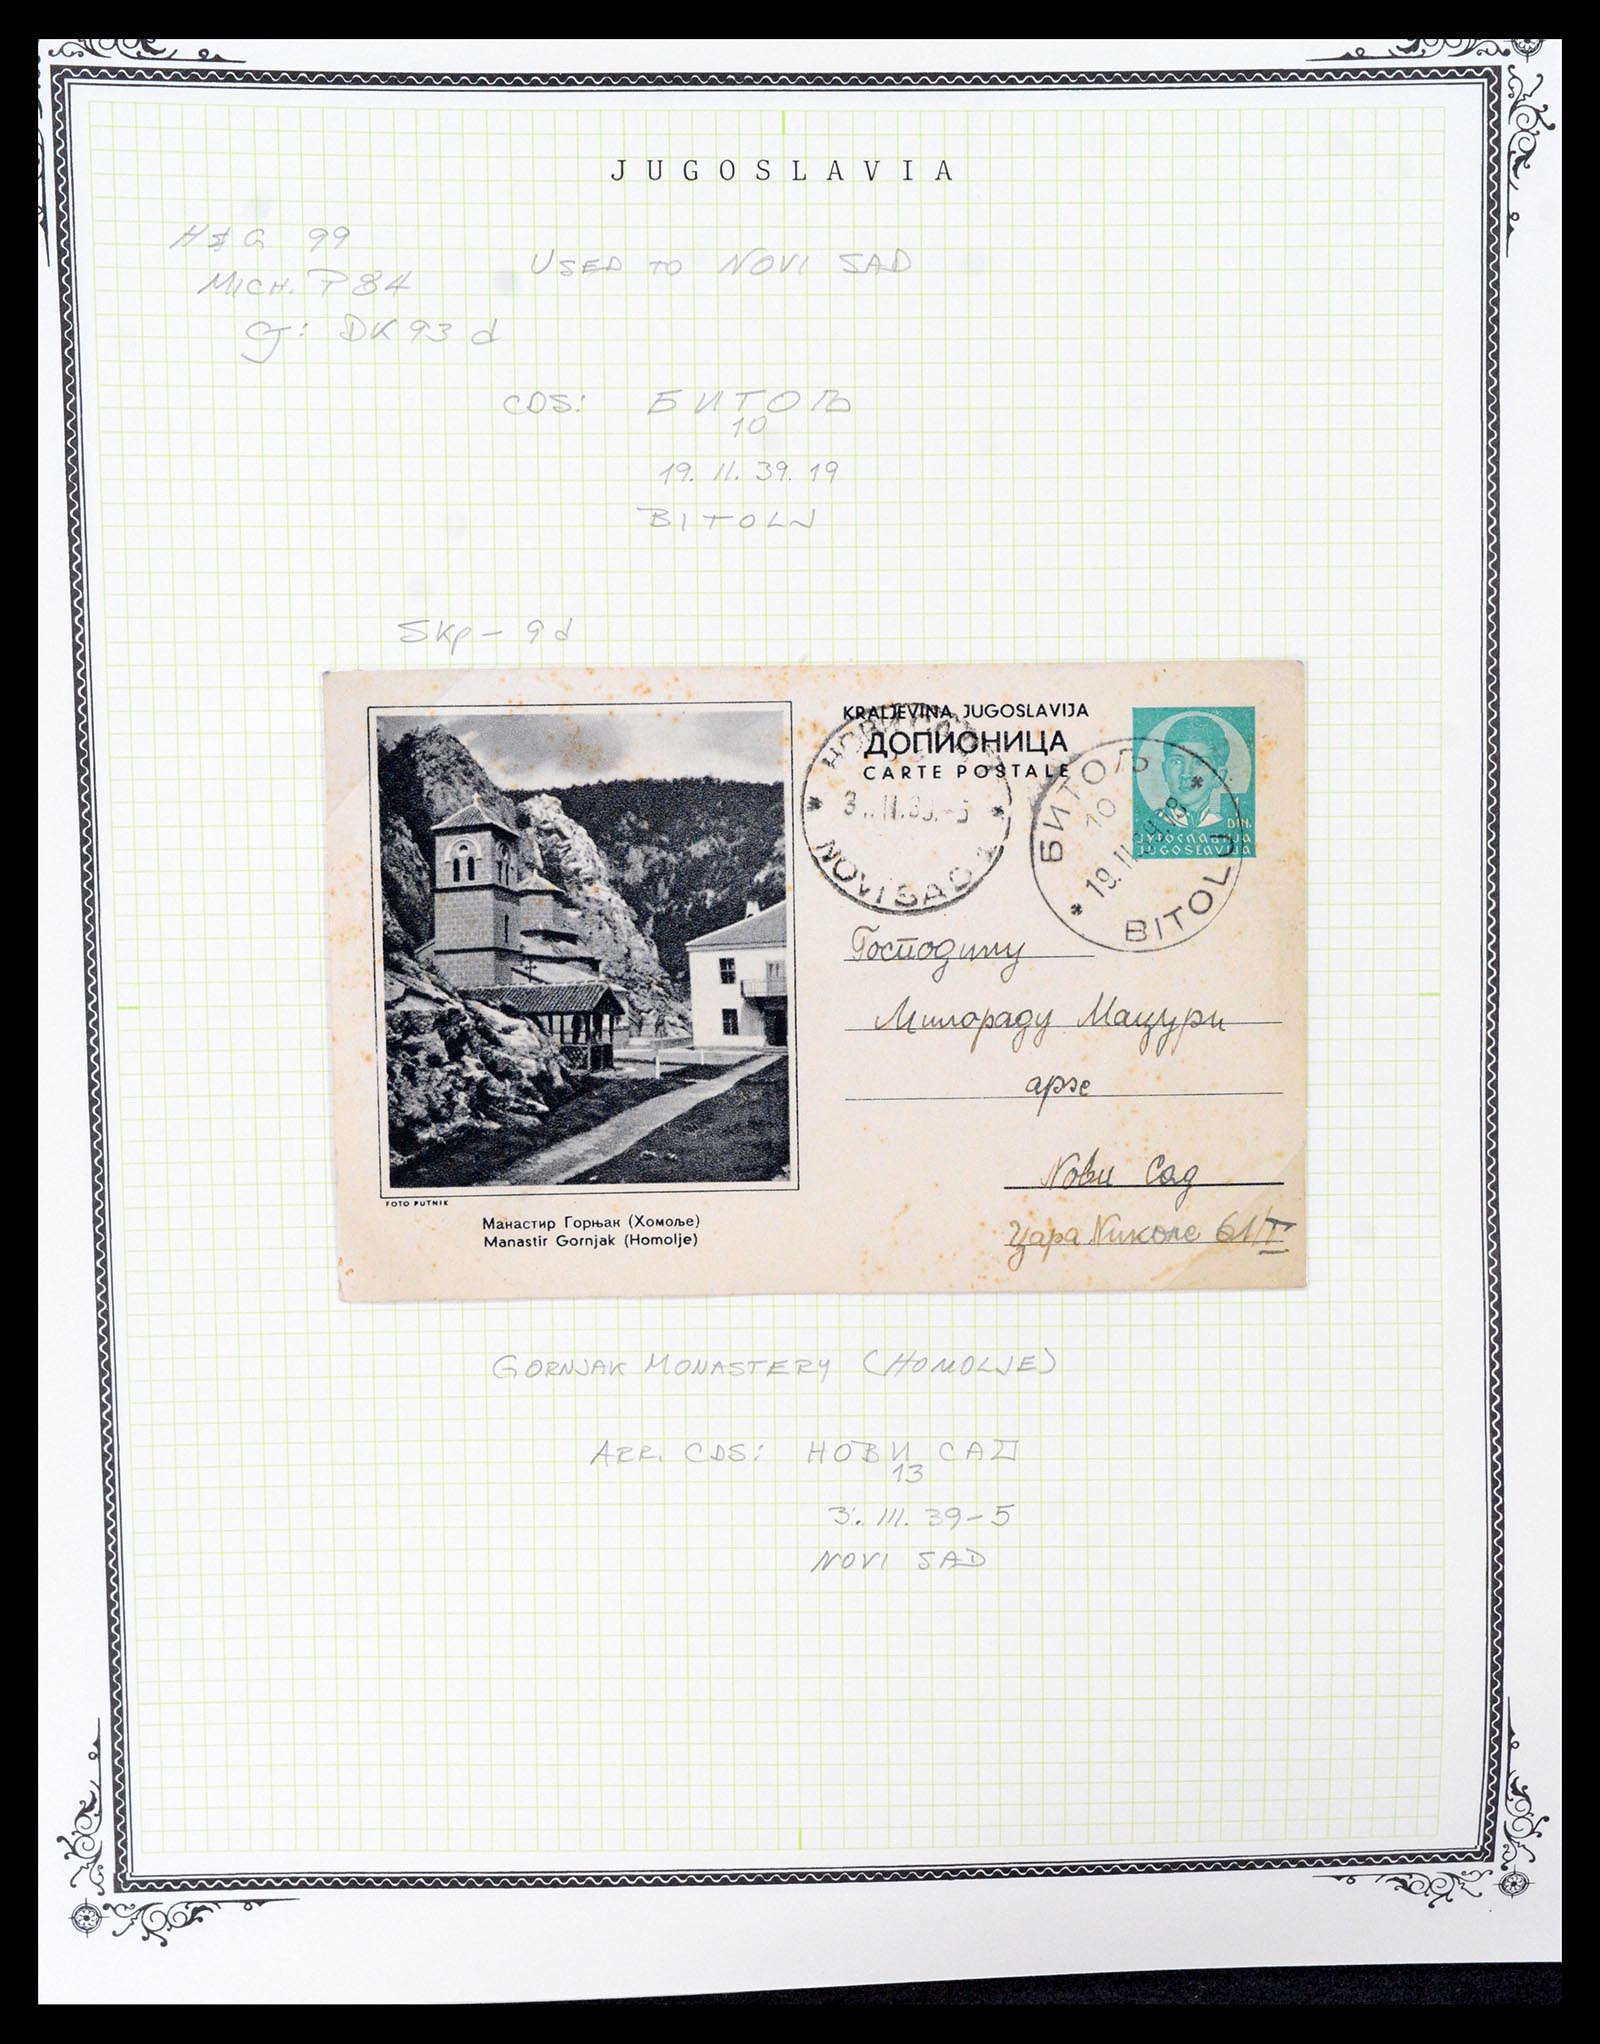 JUGOSLAVIA
H&G 99
USED TO NOVI SAD
MICH. P84
cf: DK93d
CDS: БИТОЉ
10
19. II. 39. 19
BITOLJ
Skp - 9d
KRALJEVINA JUGOSLAVIJA
ДОПИСНИЦА
CARTE POSTALE
НОВИ САД
NOVI SAD
БИТОЉ
10
19. II.
BITOLJ
DIN.
ЈУГОСЛАВИЈА
JUGOSLAVIJA
Господину
Милораду Мацури
арх
Нови Сад
Цара Николе 61/I
FOTO PUTNIK
Манастир Горњак (Хомоље)
Manastir Gornjak (Homolje)
GORNJAK MONASTERY (HOMOLJE)
ARR. CDS: НОВИ САД
13
3. III. 39-5
NOVI SAD